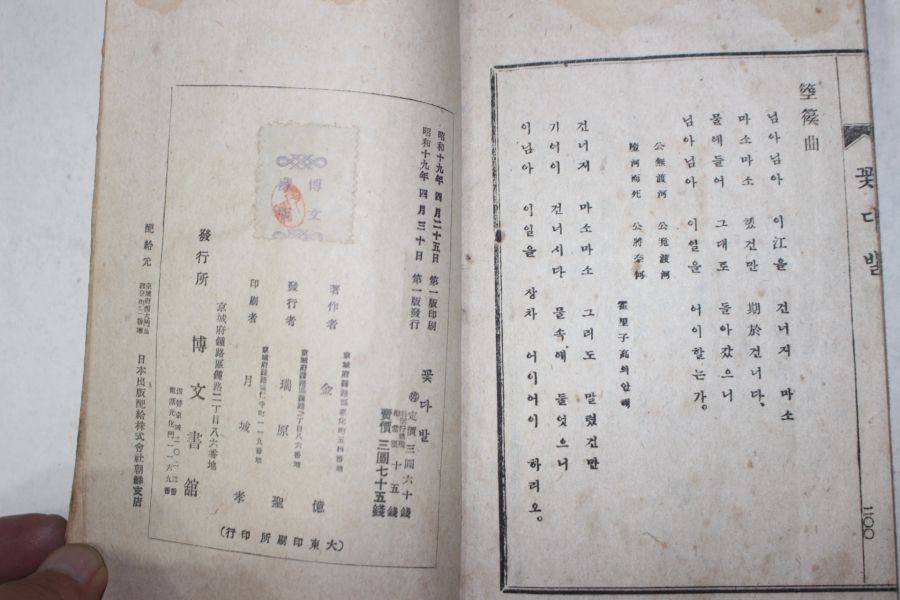 꽃다발
二〇〇
箜篌曲
님아님아 이江을 건너지 마소
마소마소 했건만 期於건너다.
물에들어 그대로 돌아갔으니
님아님아 이일을 어이할는가.
公無渡河 公竟渡河
墮河而死 公將奈何
霍里子高의안해
건너지 마소마소 그리도 말렸건만
기어이 건너시다 물속에 들엇으니
이님아 이일을 장차 어이어이 하려오.
꽃다발
定價三圓六十錢
十五錢
賣價三圓七十五錢
昭和十九年 四月二十五日 第一版印刷
昭和十九年 四月三十日 第一版發行
著作者 金 億
發行者 瑞原聖
京城府鍾路區鍾路二丁目八六番地
印刷者 月城孝
京城府鍾路區鍾路二丁目八六番地
發行所 博文書館
配給元 日本出版配給株式會社朝鮮支店
(大東印刷所印行)
博文
藏版